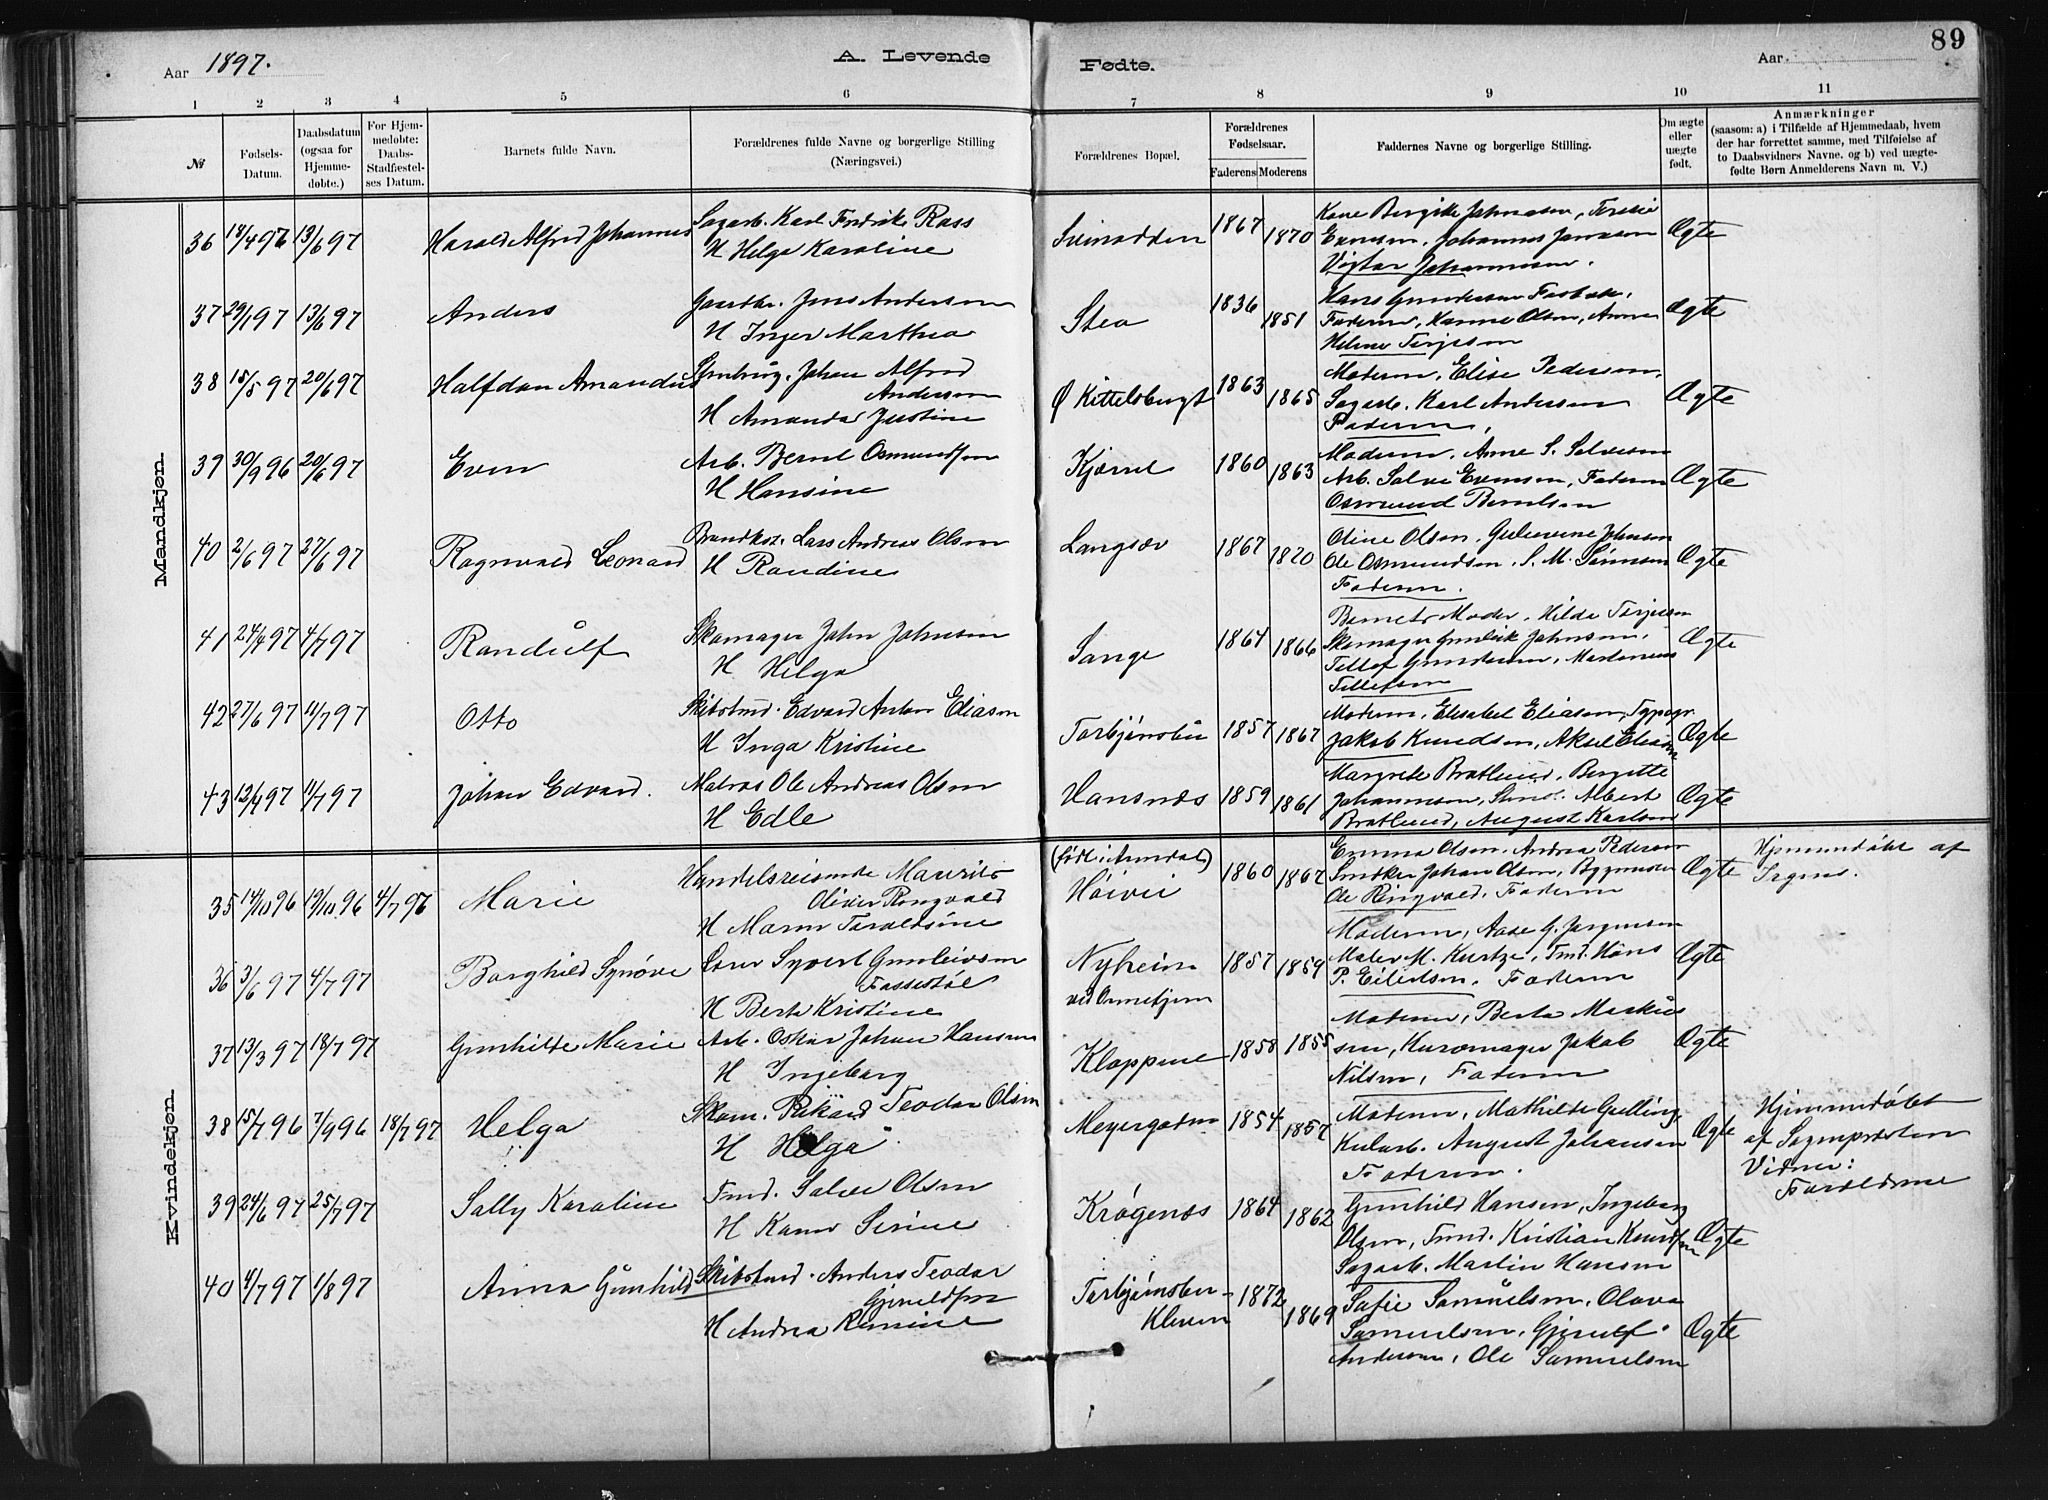 Aar 1897.
A. Levende
Fødte.
Aar
89
1 2 3 4 5 6 7 8 9 10 11
№
Fødsels-
Datum.
Daabsdatum
(ogsaa for
Hjemme-
døbte.)
For Hjem-
medøbte:
Daabs-
Stadfæstel-
ses Datum.
Barnets fulde Navn.
Forældrenes fulde Navne og borgerlige Stilling
(Næringsvei.)
Forældrenes Bopæl.
Forældrenes
Fødselsaar.
Faderens Moderens
Faddernes Navne og borgerlige Stilling.
Om ægte
eller
uægte
født.
Anmærkninger
(saasom: a) i Tilfælde af Hjemmedaab, hvem
der har forrettet samme, med Tilføielse af
to Daabsvidners Navne. og b) ved uægte-
fødte Børn Anmelderens Navn m. V.)
Mandkjøn.
36 18/4 96 13/6 97 Harald Alfred Johannes
Sagarb. Karl Fredrik Rass
H Helga Karoline
Svinodden 1867 1870
Kone Birgitte Johnsen, Terkel
Evensen, Johannes Jensen
Johannesen.
Ægte
37 29/1 97 13/6 97 Anders
Gaardbr. Jens Andersen
H Inger Marthea
Stea 1836 1851
Hans Gundersen
Faderen, Hanne Olsen, Anne
Helene Terjesen
Ægte
38 15/5 97 20/6 97 Halfdan Amandus
Johan Alfred
Andersen
H Amanda Justine
Ø Kittelsbugt 1863 1865
Moderen, Elise Pedersen,
Sagarb. Karl Andersen
Faderen,
Ægte
39 30/9 96 20/6 97 Even
Arb. Bernt Osmundsen
H Hansine
Kjærne 1860 1863
Moderen, Anne S. Salvesen
Arb. Salve Evensen, Faderen
Osmund Berntsen
Ægte
40 2/6 97 27/6 97 Ragnvald Leonard
Brandkst. Lars Andreas Olsen
H Randine
Langsæv 1867 1870
Oline Olsen, Gulverine Johnsen
Ole Osmundsen, S. M. Sørensen
Faderen.
Ægte
41 24/4 97 4/7 97 Randulf
Skomager John Johnsen
H Helga
Sange 1864 1866
Barnets Moder, Hilda Terjesen
Skomager Gunleik Johnsen,
Tellef Gundersen,
Tellefsen
Ægte
42 27/6 97 11/7 97 Otto
Skibstmd. Edvard Anton Eliasen
H Inga Kristine
Torbjønsbu 1857 1867
Moderen, Elisabet Eliasen, Typogr.
Jakob Knudsen, Aksel Eliasen
Ægte
43 12/4 97 11/7 97 Johan Edvard.
Matros Ole Andreas Olsen
H Edle
Hansnæs 1859 1861
Margrete Bratlund, Bergitte
Johannesen, Albert
Bratlund, August Karlsen
Ægte
Kvindekjøn.
35 14/10 96 19/10 96 4/7 97 Marie
Handelsreisende Maurits
Oliver Ringvold
H Maren Taraldsine
(født i Arendal)
Høivei 1860 1867
Emma Olsen, Andrea Pedersen
Snedker Johan Olsen, Bygmester
Ole Ringvold, Faderen
Ægte
Hjemmedøbt af
Sogns.
36 3/6 97 4/7 97 Borghild Synøve
Syvert Gunleivsen
Fossestøl
H Berte Kristine
Nyheim
ved Ormetjern
1857 1859
Moderen, Aase G. Jørgensen
Maler M. Kurtze, Tmd. Hans
P. Eilertsen, Faderen
Ægte
37 13/3 97 18/7 97 Gunhilde Marie
Arb. Oskar Johan Hansen
H Ingeborg
Kloppene 1858 1855
Moderen, Berta Markus
sen, Kuromager Jakob
Nilsen, Faderen
Ægte
38 15/7 96 7/9 96 18/7 97 Helga
Skom. Rikard Teodor Olsen
H Helga
Meyergaden 1854 1857
Moderen, Mathilde Gulling,
Kularb. August Johansen
Faderen.
Ægte
Hjemmedøbt
af Sognepræsten
Vidner:
Forældrene
39 24/6 97 25/7 97 Sally Karoline
Tmd. Salve Olsen
H Karen Serine
Krøgenæs 1864 1862
Gunhild Hansen, Ingeborg
Olsen, Tmd. Kristian Knudsen
Sagarb. Martin Hansen
Ægte
40 4/7 97 1/8 97 Anna Gunhild
Skibstmd. Anders Teodor
Gjeruldsen
H Andrea
Torbjørnsbu-
Kleven
1872 1869
Sofie Samuelsen, Olava
Samuelsen, Gjerulf
Andersen, Ole Samuelsen
Ægte